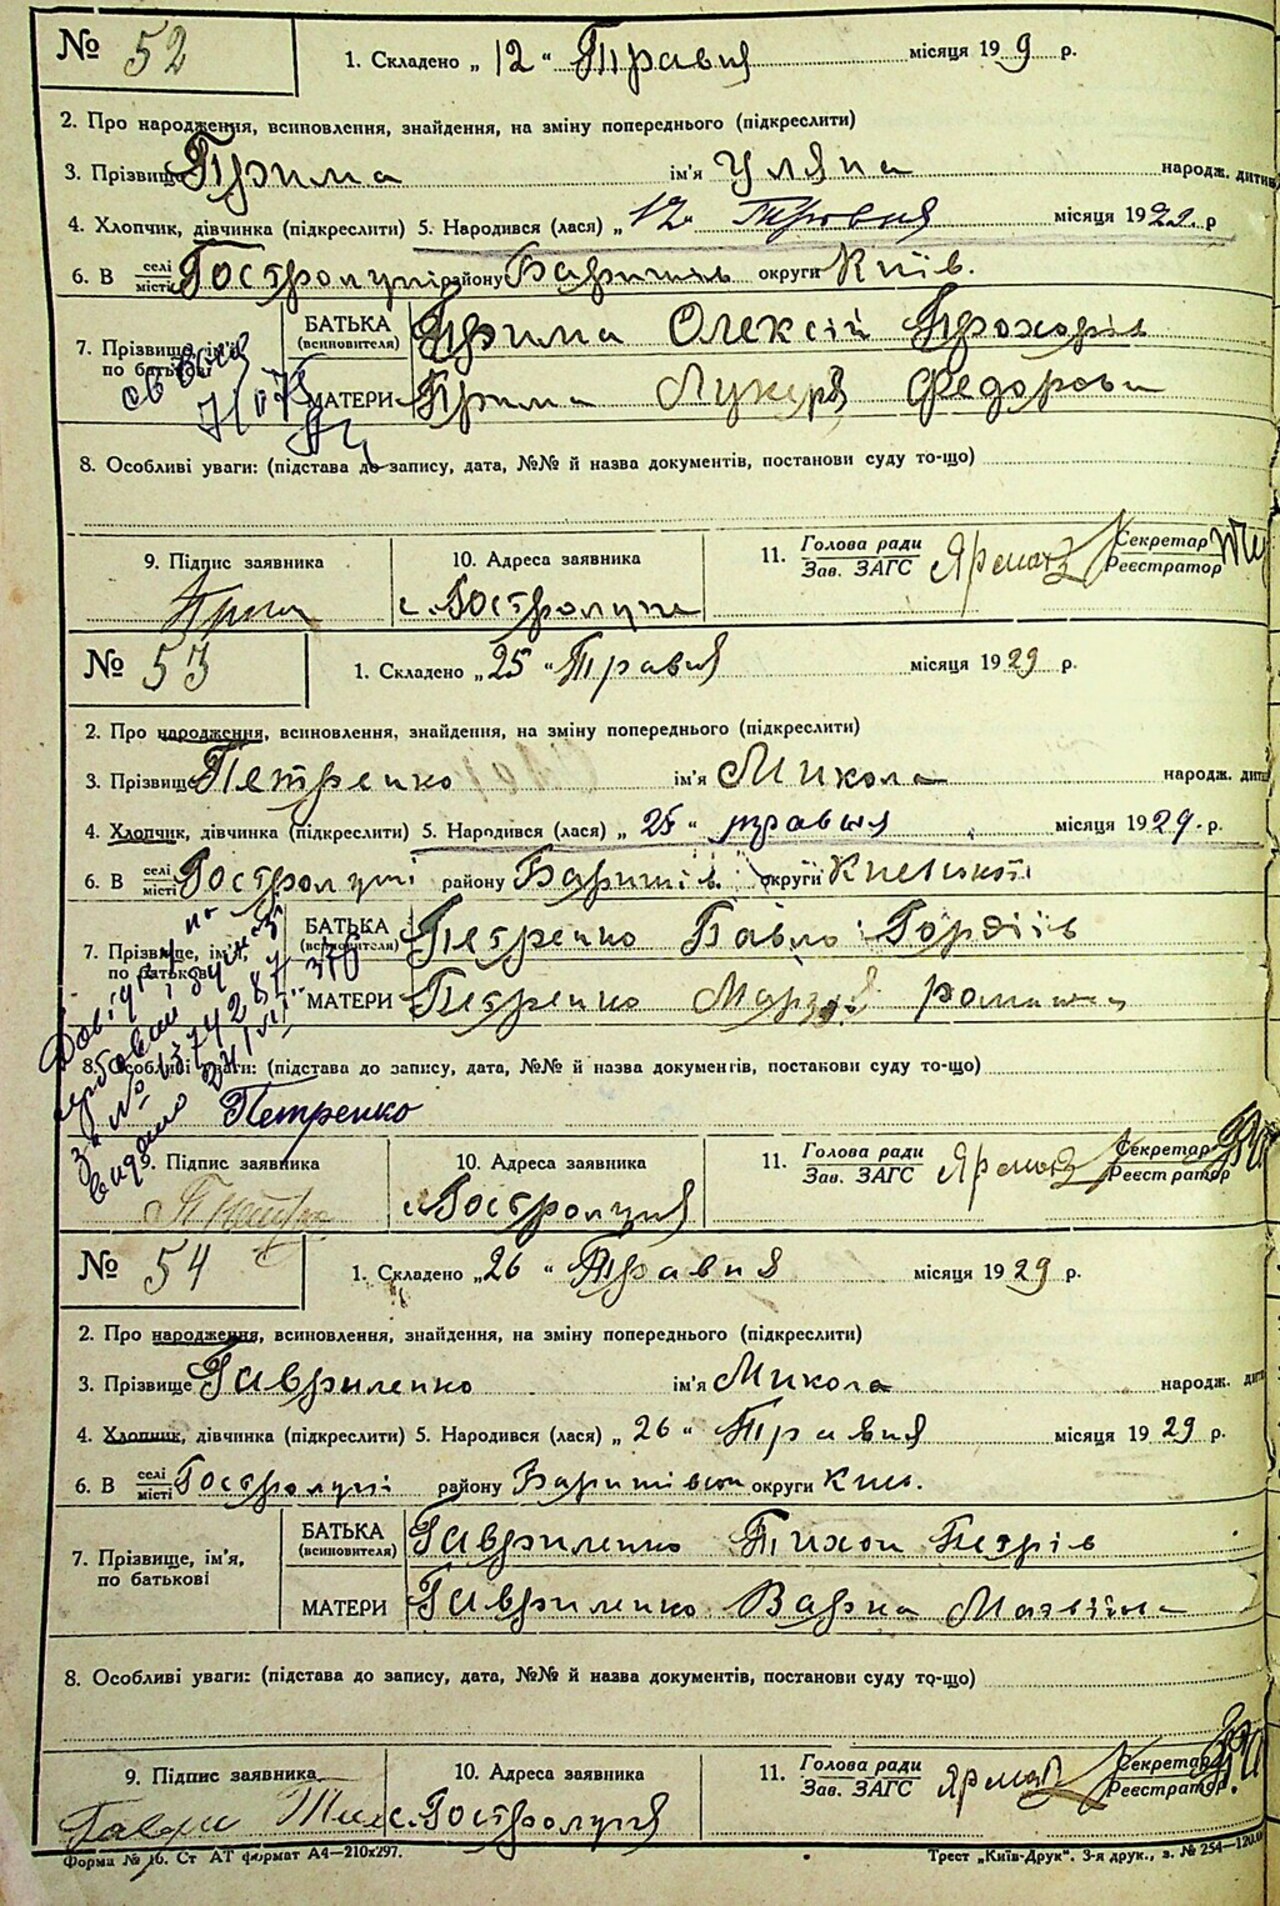 № 52
1. Складено „12“ Травня місяця 19 9 р.
2. Про народження, всиновлення, знайдення, на зміну попереднього (підкреслити)
3. Прізвище Прима ім'я Уляна народж. дитини
4. Хлопчик, дівчинка (підкреслити) 5. Народився (лася) „12“ Травня місяця 1929. р
6. В селі місті Гостролучі району Баришів округи Київ.
7. Прізвище, ім'я, по батькові
БАТЬКА (всиновителя) Прима Олексій Прохорів
МАТЕРИ Прима Лукеря Федорови
8. Особливі уваги: (підстава до запису, дата, №№ й назва документів, постанови суду то-що)
9. Підпис заявника 10. Адреса заявника 11. Голова ради Зав. ЗАГС Секретар Реєстратор
с. Гостролуча
№ 53
1. Складено „25“ Травня місяця 1929 р.
2. Про народження, всиновлення, знайдення, на зміну попереднього (підкреслити)
3. Прізвище Петренко ім'я Микола народж. дити
4. Хлопчик, дівчинка (підкреслити) 5. Народився (лася) „25“ травня місяця 1929. р.
6. В селі місті Гостролучі району Баришів. округи Київської
7. Прізвище, ім'я, по батькові
БАТЬКА (всиновителя) Петренко Павло Гордіїв
МАТЕРИ Петренко
8. Особливі уваги: (підстава до запису, дата, №№ й назва документів, постанови суду то-що)
Петренко
9. Підпис заявника 10. Адреса заявника 11. Голова ради Зав. ЗАГС Секретар Реєстратор
с. Гостролуця
№ 54
1. Складено „26“ Травня місяця 1929 р.
2. Про народження, всиновлення, знайдення, на зміну попереднього (підкреслити)
3. Прізвище Гавриленко ім'я Микола народж. дит
4. Хлопчик, дівчинка (підкреслити) 5. Народився (лася) „26“ Травня місяця 1929 р.
6. В селі місті Гостролучі району округи Київ.
7. Прізвище, ім'я, по батькові
БАТЬКА (всиновителя) Гавриленко Тихон Петрів
МАТЕРИ Гавриленко Варка Матвіївна
8. Особливі уваги: (підстава до запису, дата, №№ й назва документів, постанови суду то-що)
9. Підпис заявника 10. Адреса заявника 11. Голова ради Зав. ЗАГС Секретар Реєстратор
с. Гостролуця
Форма № 16. Ст АТ формат А4—210х297.
Трест „Київ-Друк“. 3-я друк., з. № 254—120.0